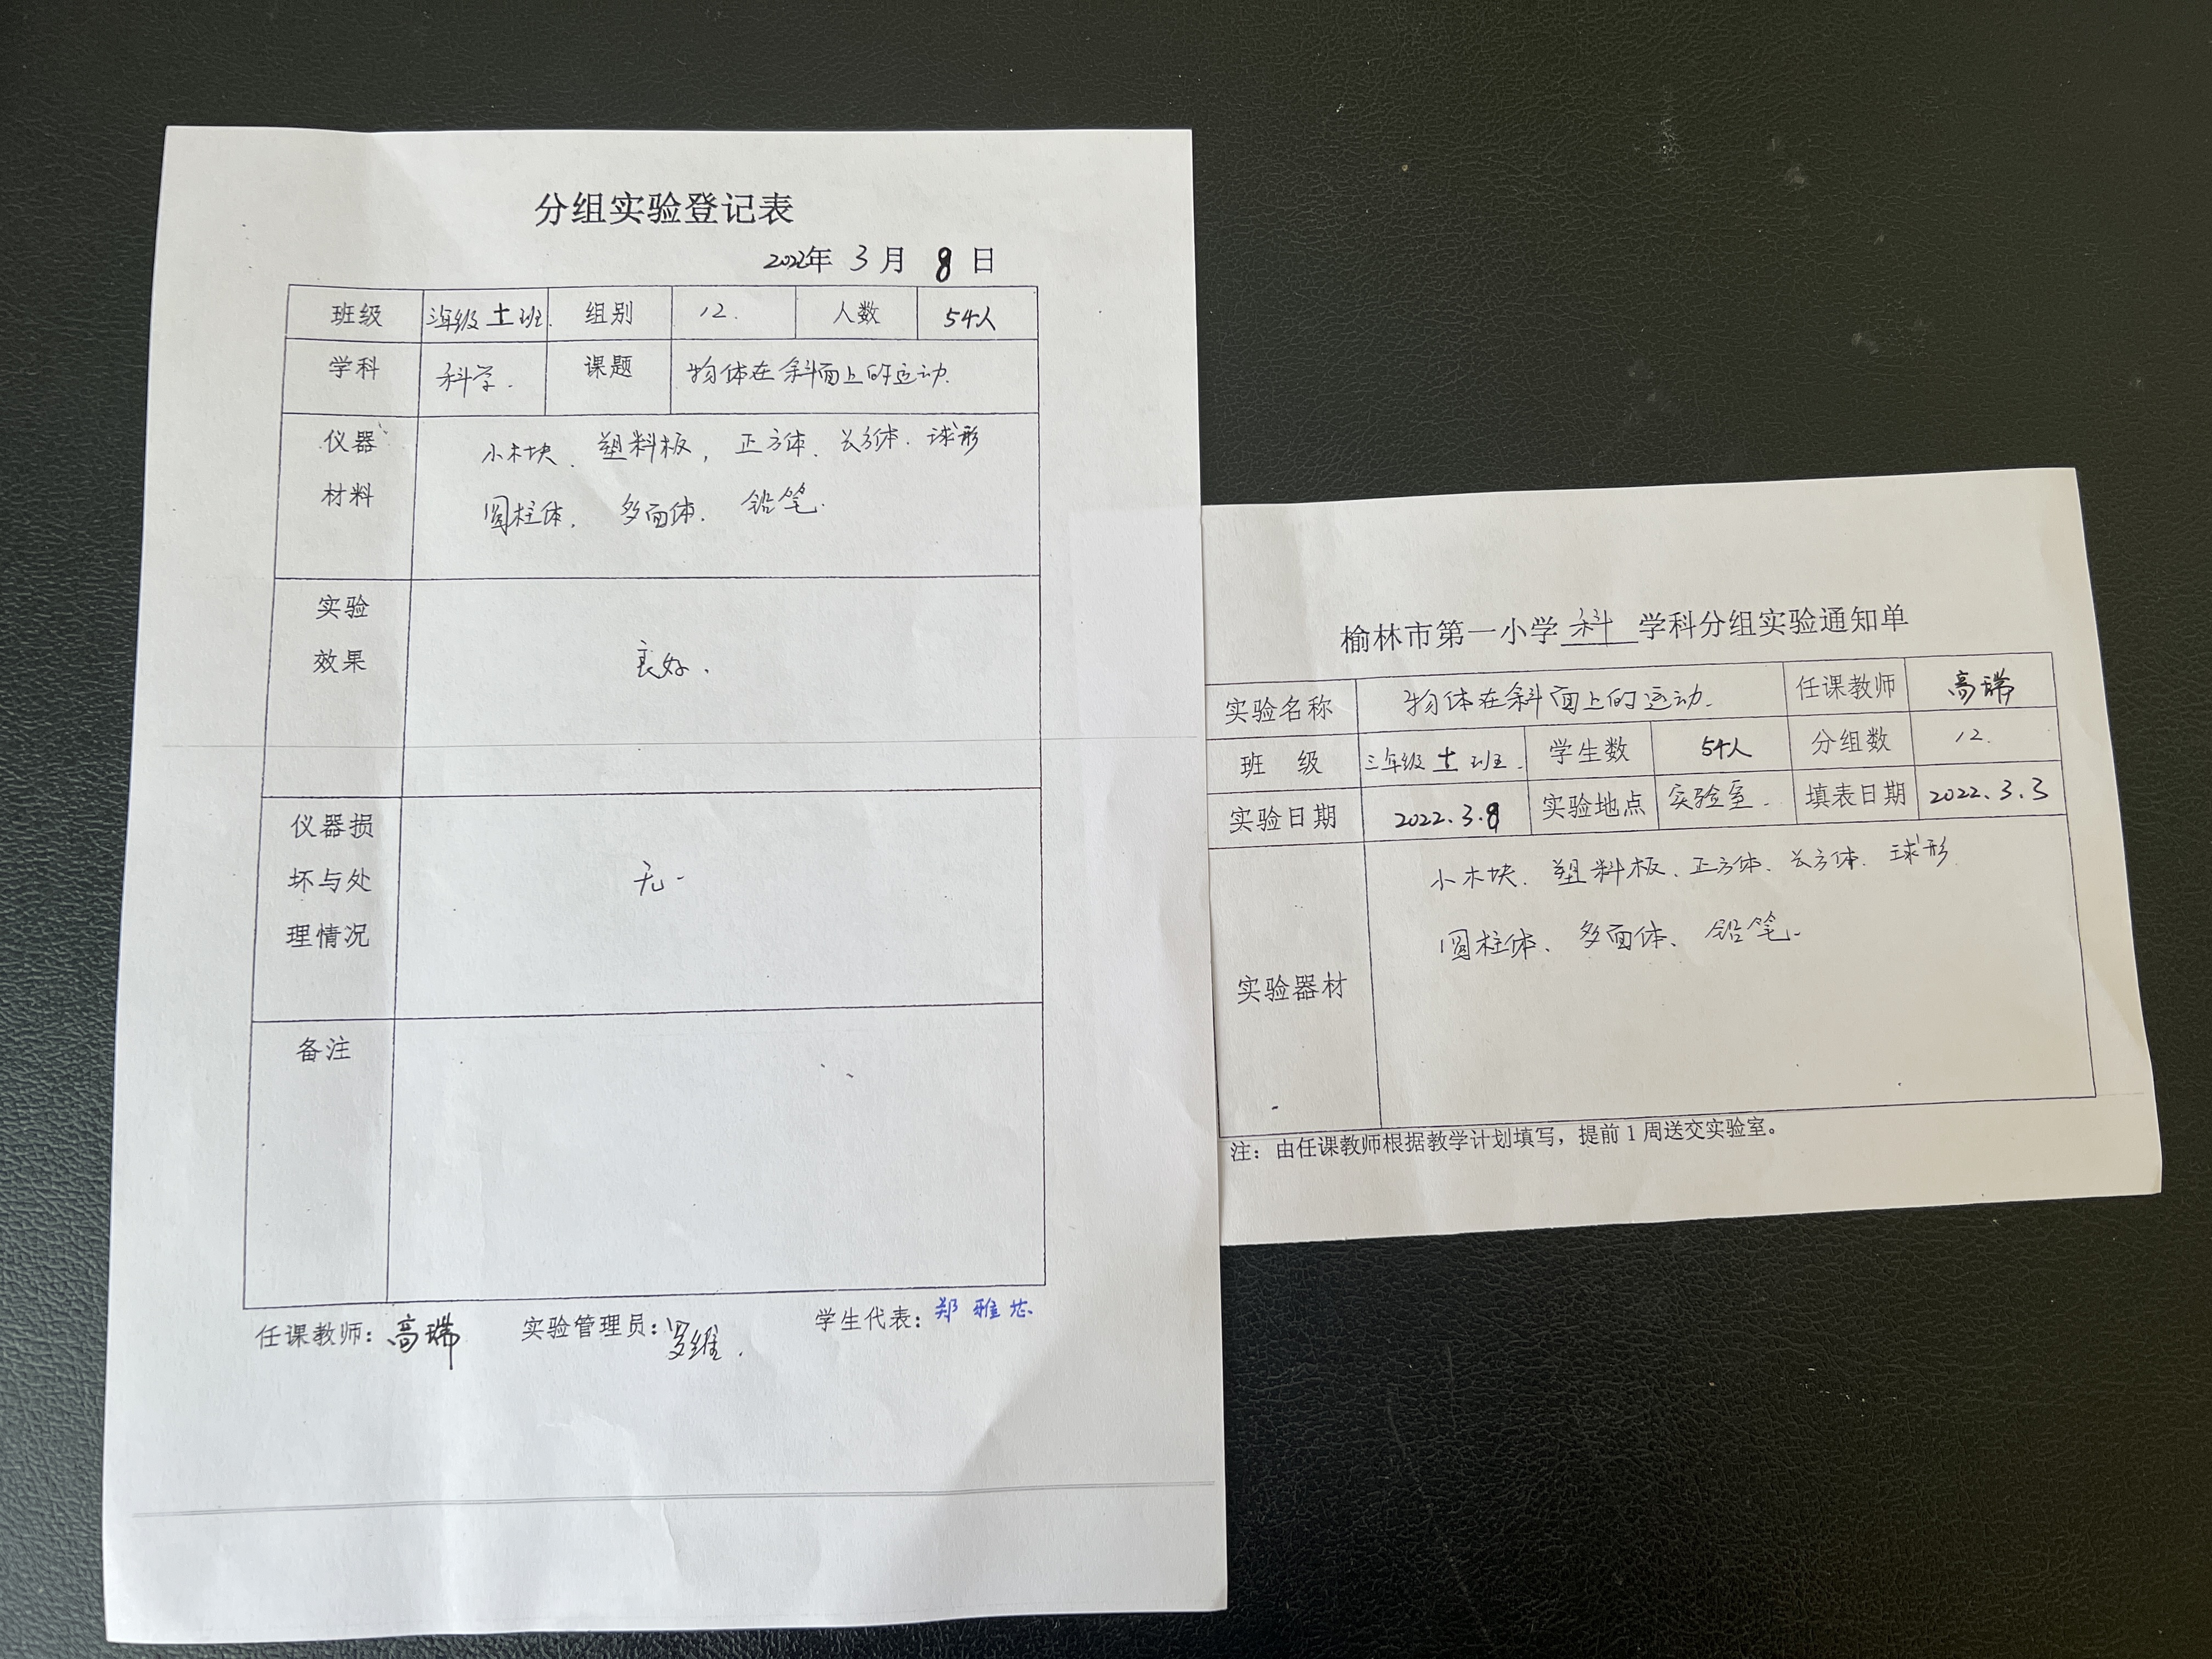 分组实验登记表
2022年 3 月 8 日
班级 三年级 十一 班. 组别 12. 人数 54人
学科 科学. 课题 物体在斜面上的运动.
仪器 小木块、塑料板,正方体、长方体.球形
材料 圆柱体, 多面体. 铅笔.
实验
效果 良好.
仪器损
坏与处 无.
理情况
备注
任课教师:高瑞 实验管理员:罗维. 学生代表:郑雅芯
榆林市第一小学 科 学科分组实验通知单
实验名称 物体在斜面上的运动. 任课教师 高瑞
班 级 三年级 十一 班. 学生数 54人 分组数 12.
实验日期 2022.3.8 实验地点 实验室. 填表日期 2022.3.3
小木块、塑料板、正方体、长方体.球形
圆柱体、多面体、铅笔.
实验器材
注:由任课教师根据教学计划填写,提前1周送交实验室。